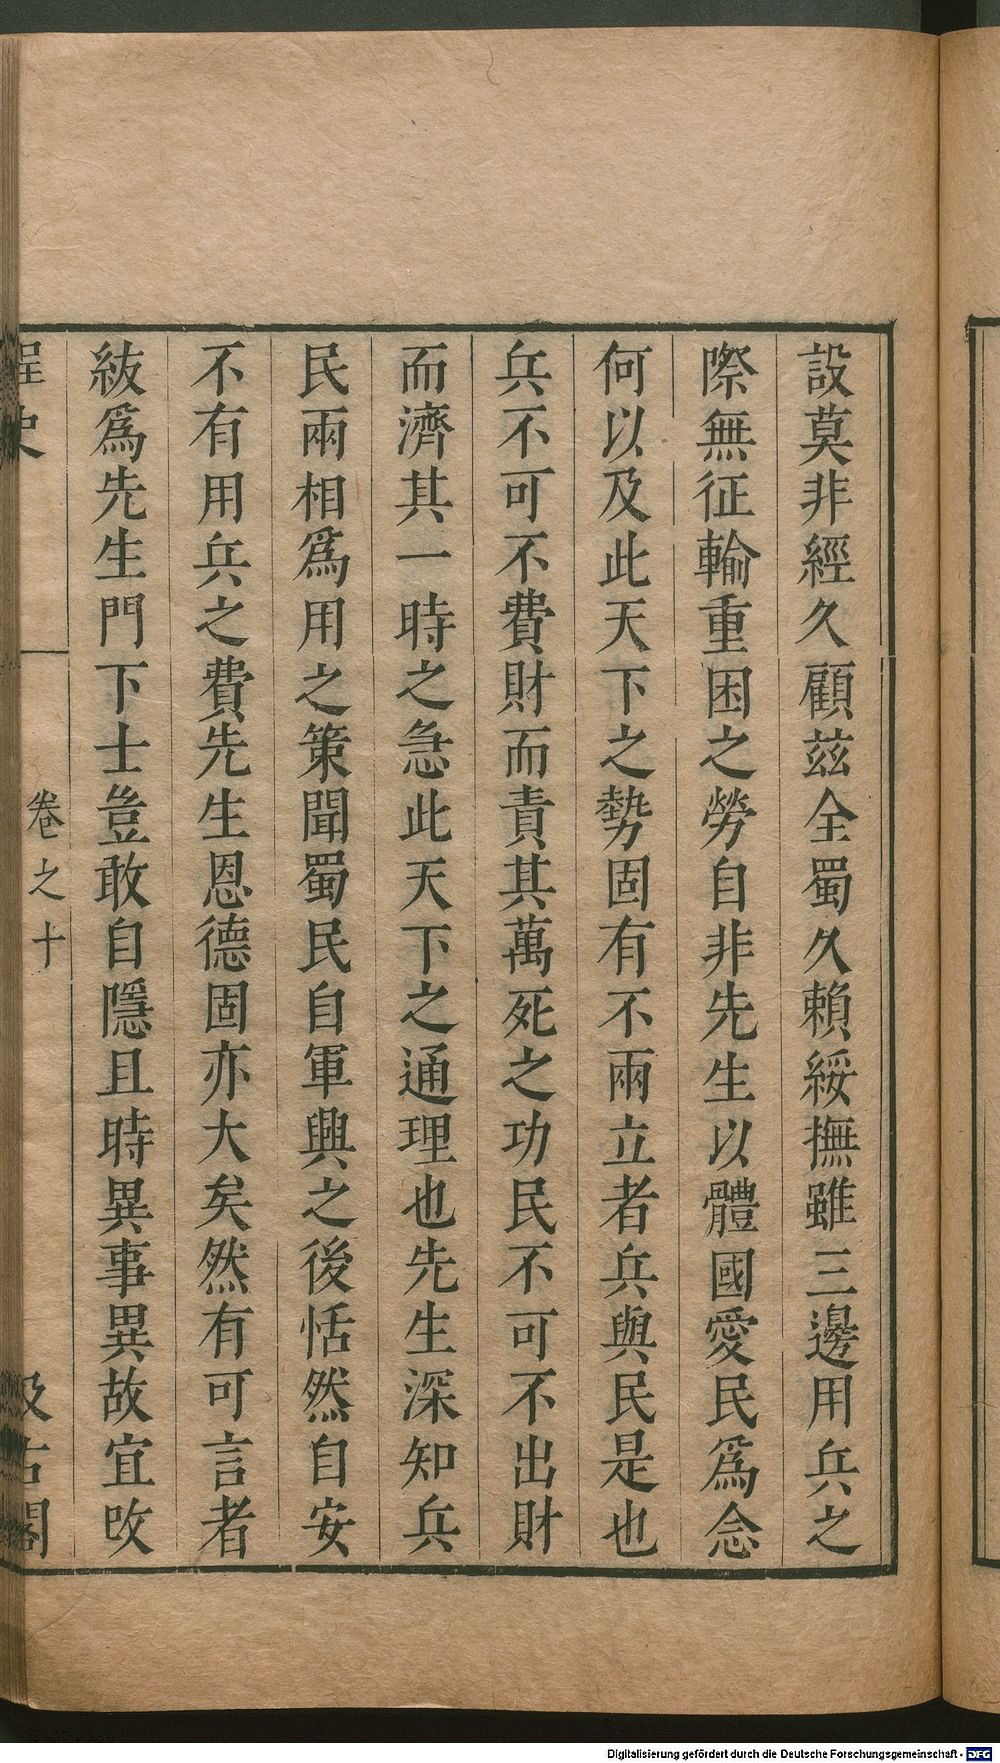 設莫非經久顧茲全蜀久賴綏撫雖三邊用兵之
際無征輸重困之勞自非先生以體國愛民爲念
何以及此天下之勢固有不兩立者兵與民是也
兵不可不費財而責其萬死之功民不可不出財
而濟其一時之急此天下之通理也先生深知兵
民兩相爲用之策聞蜀民自軍興之後恬然自安
不有用兵之費先生恩德固亦大矣然有可言者
紱爲先生門下士豈敢自隱且時異事異故宜改
桯史
卷之十
汲古閣
Digitalisierung gefördert durch die Deutsche Forschungsgemeinschaft - DFG